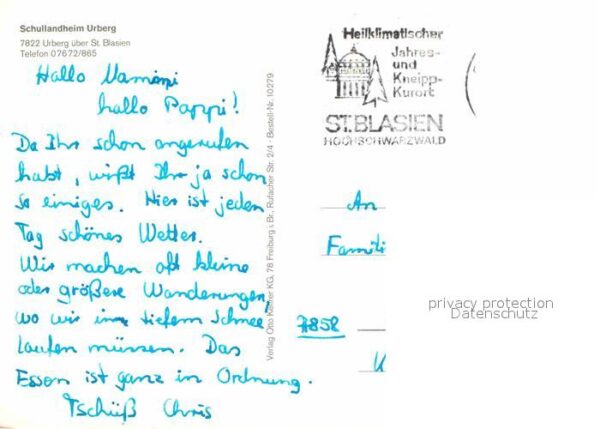 Schullandheim Urberg
7822 Urberg über St. Blasien
Telefon 07672/865
Hallo Mammi
hallo Pappi!
Da Ihr schon angerufen
habt, wißt Ihr ja schon
so einiges. Hier ist jeden
Tag schönes Wetter.
Wir machen oft kleine
oder größere Wanderungen,
wo wir im tiefem Schnee
laufen müssen. Das
Essen ist ganz in Ordnung.
Tschüß Chris
Verlag Otto KG, 78 Freiburg i. Br., Rufacher Str. 2/4 · Bestell-Nr. 10279
Heilklimatischer
Jahres-
und
Kneipp-
Kurort
ST. BLASIEN
HOCHSCHWARZWALD
An
Famili
7858
privacy protection
Datenschutz